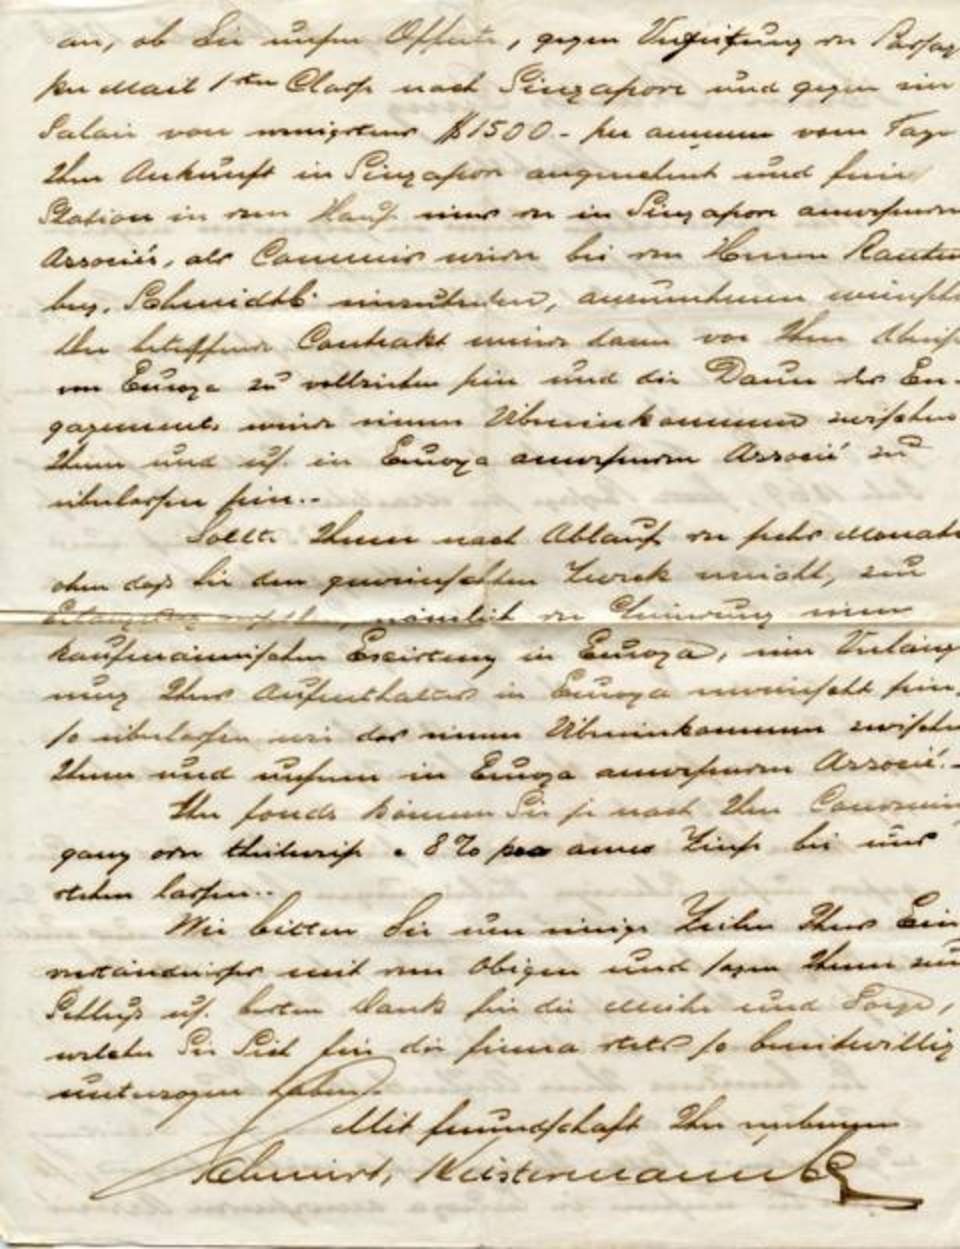 an, ob Sie unsere Offerte, gegen Vergütung der Passage
per Mail 1sten Classe nach Singapore und gegen ein
Salair von wenigstens $1500.- per annum vom Tage
Ihrer Ankunft in Singapore angenehmt und feine
Station in dem Hause eines der in Singapore anwesenden
Associés, als Commis wieder bei den Herren Rauten
berg, Schmidt & Co einzutreten, anzunehmen wünschen
Der betreffende Contrakt würde dann vor Ihrer Abreise
von Europa zu vollziehen sein und die Dauer des En-
gagements würde einem Übereinkommen zwischen
Ihnen und uns. in Europa anwesenden Associé zu
überlassen sein..
Sollte Ihnen nach Ablauf der sechs Monate
ohne dass Sie den gewünschten Zweck erreicht, zur
nämlich der Creirung einer
kaufmännischen Existenz in Europa, eine Verlänge
rung Ihres Aufenthaltes in Europa erwünscht sein,
so überlassen wir das einem Übereinkommen zwischen
Ihnen und unserm in Europa anwesenden Associé.-
Ihre fonds können Sie je nach Ihrer Convenienz
ganz oder theilweise a 8% pro anno Zins bei uns
stehen lassen..
Wir bitten Sie um einige Zeilen Ihres Ein
verständnisses mit dem Obigen und sagen Ihnen zum
Schluss uns. besten Dank für die Mühe und Sorge,
welche Sie Sich für die firma stets so bereitwillig
unterzogen haben.
Mit freundschaft Ihre ergebenen
Schmidt, Küstermann & Co